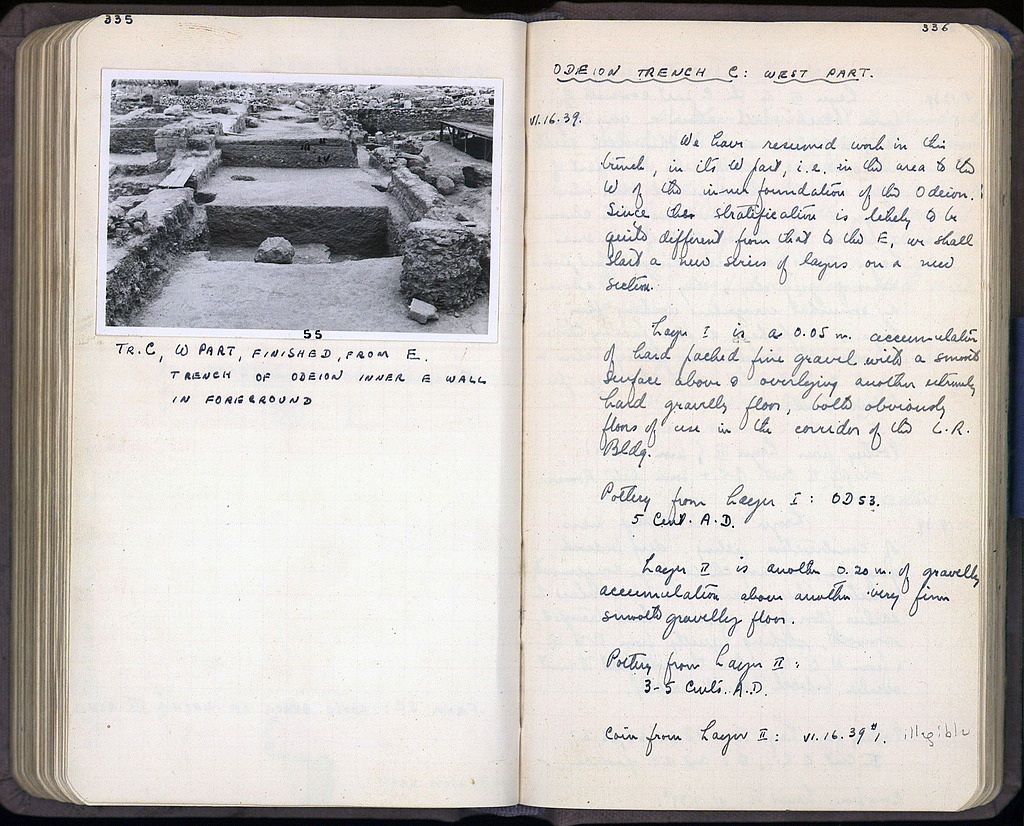 335
III II
IV
55
TR.C, W PART, FINISHED, FROM E.
TRENCH OF ODEION INNER E WALL
IN FOREGROUND
336
ODEION TRENCH C: WEST PART.
VI.16.39.
We have resumed work in this
trench, in its W part, i.e. in the area to the
W of the inner foundation of the Odeion.
Since the stratification is likely to be
quite different from that to the E, we shall
start a new series of layers on a new
section.
Layer I is a 0.05 m. accumulation
of hard packed fine gravel with a smooth
surface above & overlying another extremely
hard gravelly floor, both obviously
floors of use in the corridor of the L.R.
Bldg.
Pottery from Layer I: OD53.
5 Cent. A.D.
Layer II is another 0.20 m. of gravelly
accumulation above another very firm
smooth gravelly floor.
Pottery from Layer II:
3-5 Cents. A.D.
Coin from Layer II: VI.16.39 #1. illegible